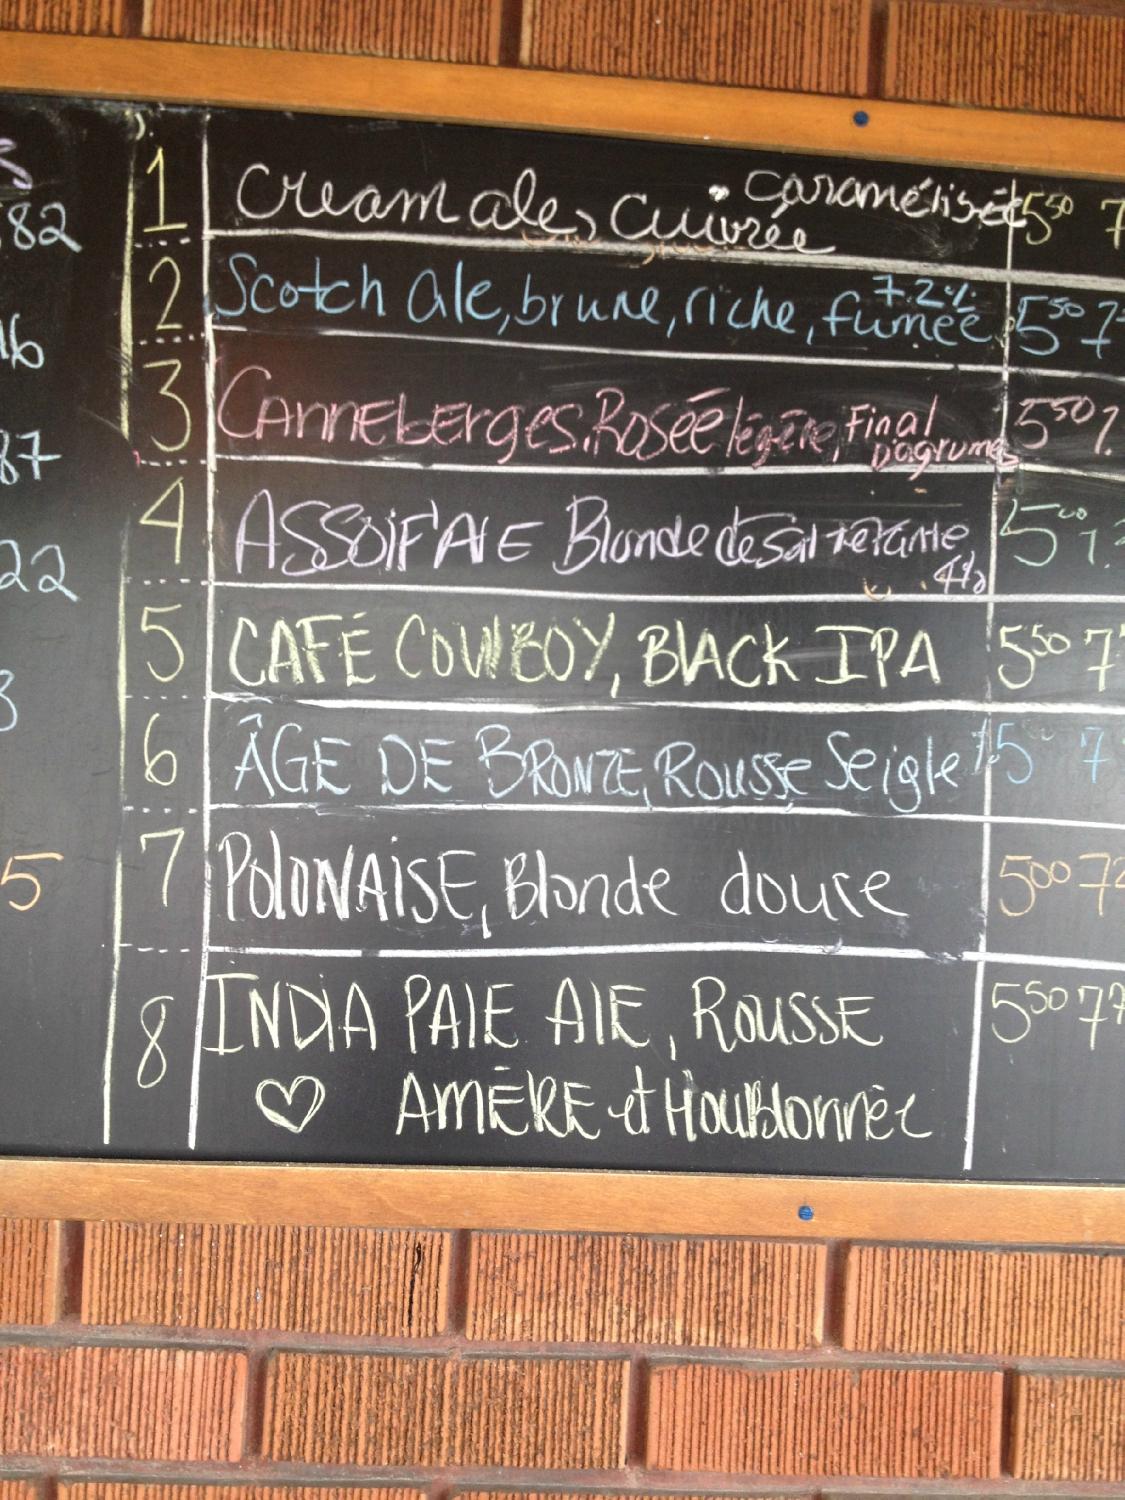 82
16
87
22
3
5
1 Cream ale, Cuivrée caramélisée 5 50 7
2 Scotch Ale, brune, riche, fumée 7.2% 5 50 7
3 Canneberges, Rosée légère, Final D'agrumes 5 50 7
4 ASSOIF'ALE Blonde désaltérante 4% 5 00 7
5 CAFÉ COWBOY, BLACK IPA 5 50 7
6 ÂGE DE BRONZE, ROUSSE Seigle 5 7
7 POLONAISE, Blonde douce 5 00 7
8 INDIA PALE ALE, ROUSSE 5 50 7
♡ AMÈRE et HOUBlonnée